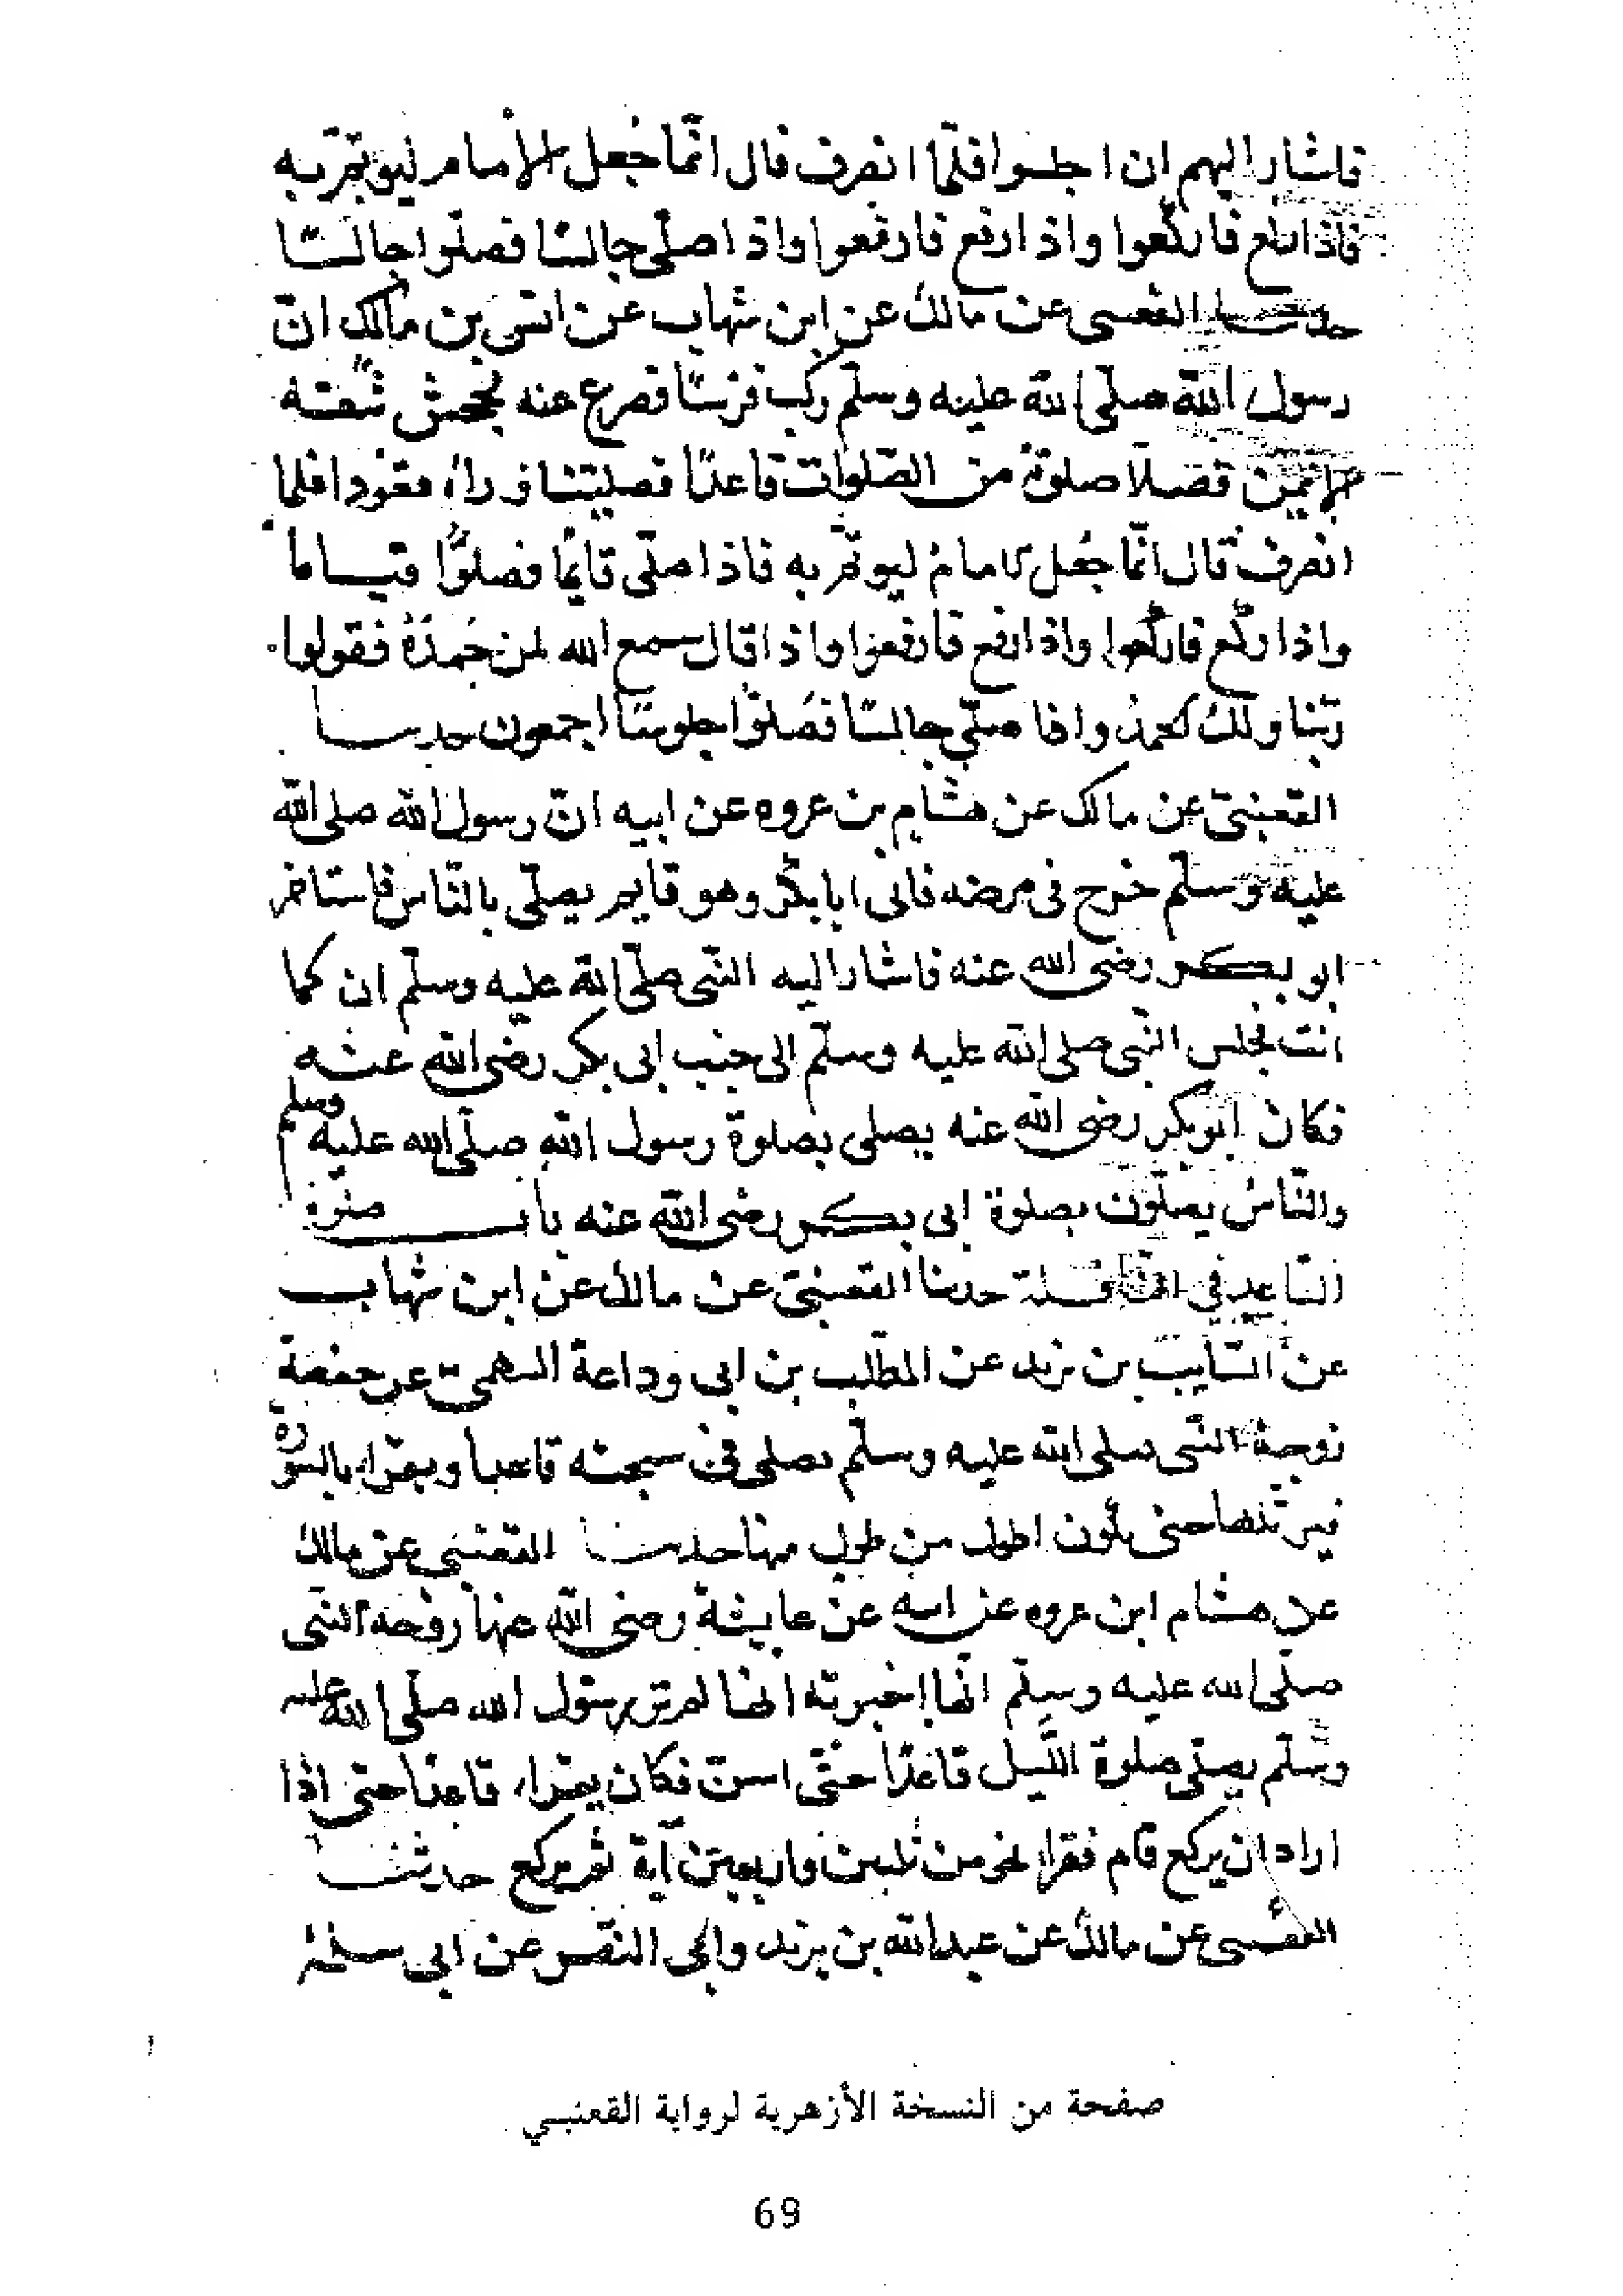 فاشار اليهم ان اجلسوا فلمّا انصرف قال انّما جُعل الأمام ليوتمّ به
فاذا ركع فاركعوا واذا رفع فارفعوا واذا صلّى جالسًا فصلّوا جالسًا
حدثنا القعنبى عن مالك عن ابن شهاب عن انس بن مالك انّ
رسول الله صلّى الله عليه وسلّم ركب فرسًا فصرع عنه فجحش شقّه
الايمن فصلّا صلوة من الصّلوات قاعدًا فصلّينا وراءه قعودا فلما
انصرف قال انّما جُعل الامام ليوتمّ به فاذا صلّى قايمًا فصلوّا قياما
واذا ركع فاركعوا واذا رفع فارفعوا واذا قال سمع الله لمن حمدَهُ فقولوا
ربّنا ولك الحمد واذا صلّى جالسًا فصلوّا جلوسًا اجمعون حدىىا
القعنبىّ عن مالك عن هشام بن عروه عن ابيه انّ رسول الله صلى الله
عليه وسلّم خرج فى مرضه فاتى ابا بكر وهو قايم يصلّى بالنّاس فاستاخر
ابو بكر رضى الله عنه فاشار اليه النّبى صلّى الله عليه وسلّم ان كما
انت فجلس النّبى صلى الله عليه وسلّم الى جنب ابى بكر رضى الله عنه
فكان ابو بكر رضى الله عنه يصلى بصلوة رسول الله صلّى الله عليه وسلم
والنّاس يصلّون بصلوة ابى بكر رضى الله عنه باب صلوة
القاعد في النافلة حدىنا القعنبىّ عن مالك عن ابن شهاب
عن السّايب بن يزيد عن المطّلب بن ابى وداعة السهمى عن حفصة
زوجة النّبى صلى الله عليه وسلّم يصلى فى سبحته قاعدا ويقراء بالسّورة
فيرتلها حتى تكون اطول من طول منها حدىنا القعنبى عن مالك
عن هشام ابن عروه عن ابيه عن عايشة رضى الله عنها زوجة النبى
صلّى الله عليه وسلّم انّها اخبرته انها لم تر رسول الله صلّى الله عليه
وسلّم يصلّى صلوة اللّيل قاعدًا حتّى اسنّ فكان يقراء قاعدًا حتى اذا
اراد ان يركع قام فقراء نحو من ثلاثين او اربعين آية ثم يركع حدثنا
القعنبى عن مالك عن عبد الله بن يزيد وابى النّضر عن ابى سلمة
صفحة من النسخة الأزهرية لرواية القعنبي
69